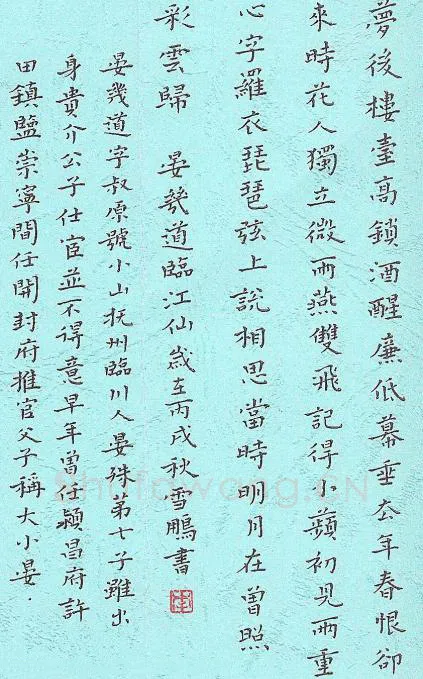 夢後樓臺高鎖酒醒簾低幕垂去年春恨卻
來時花人獨立微雨燕雙飛記得小蘋初見兩重
心字羅衣琵琶弦上說相思當時明月在曾照
彩雲歸 晏幾道臨江仙歲在丙戌秋雪鵬書
晏幾道字叔原號小山抚州臨川人晏殊第七子雖出
身貴介公子仕宦並不得意早年曾任潁昌府許
田鎮鹽崇寧間任開封府推官父子稱大小晏.